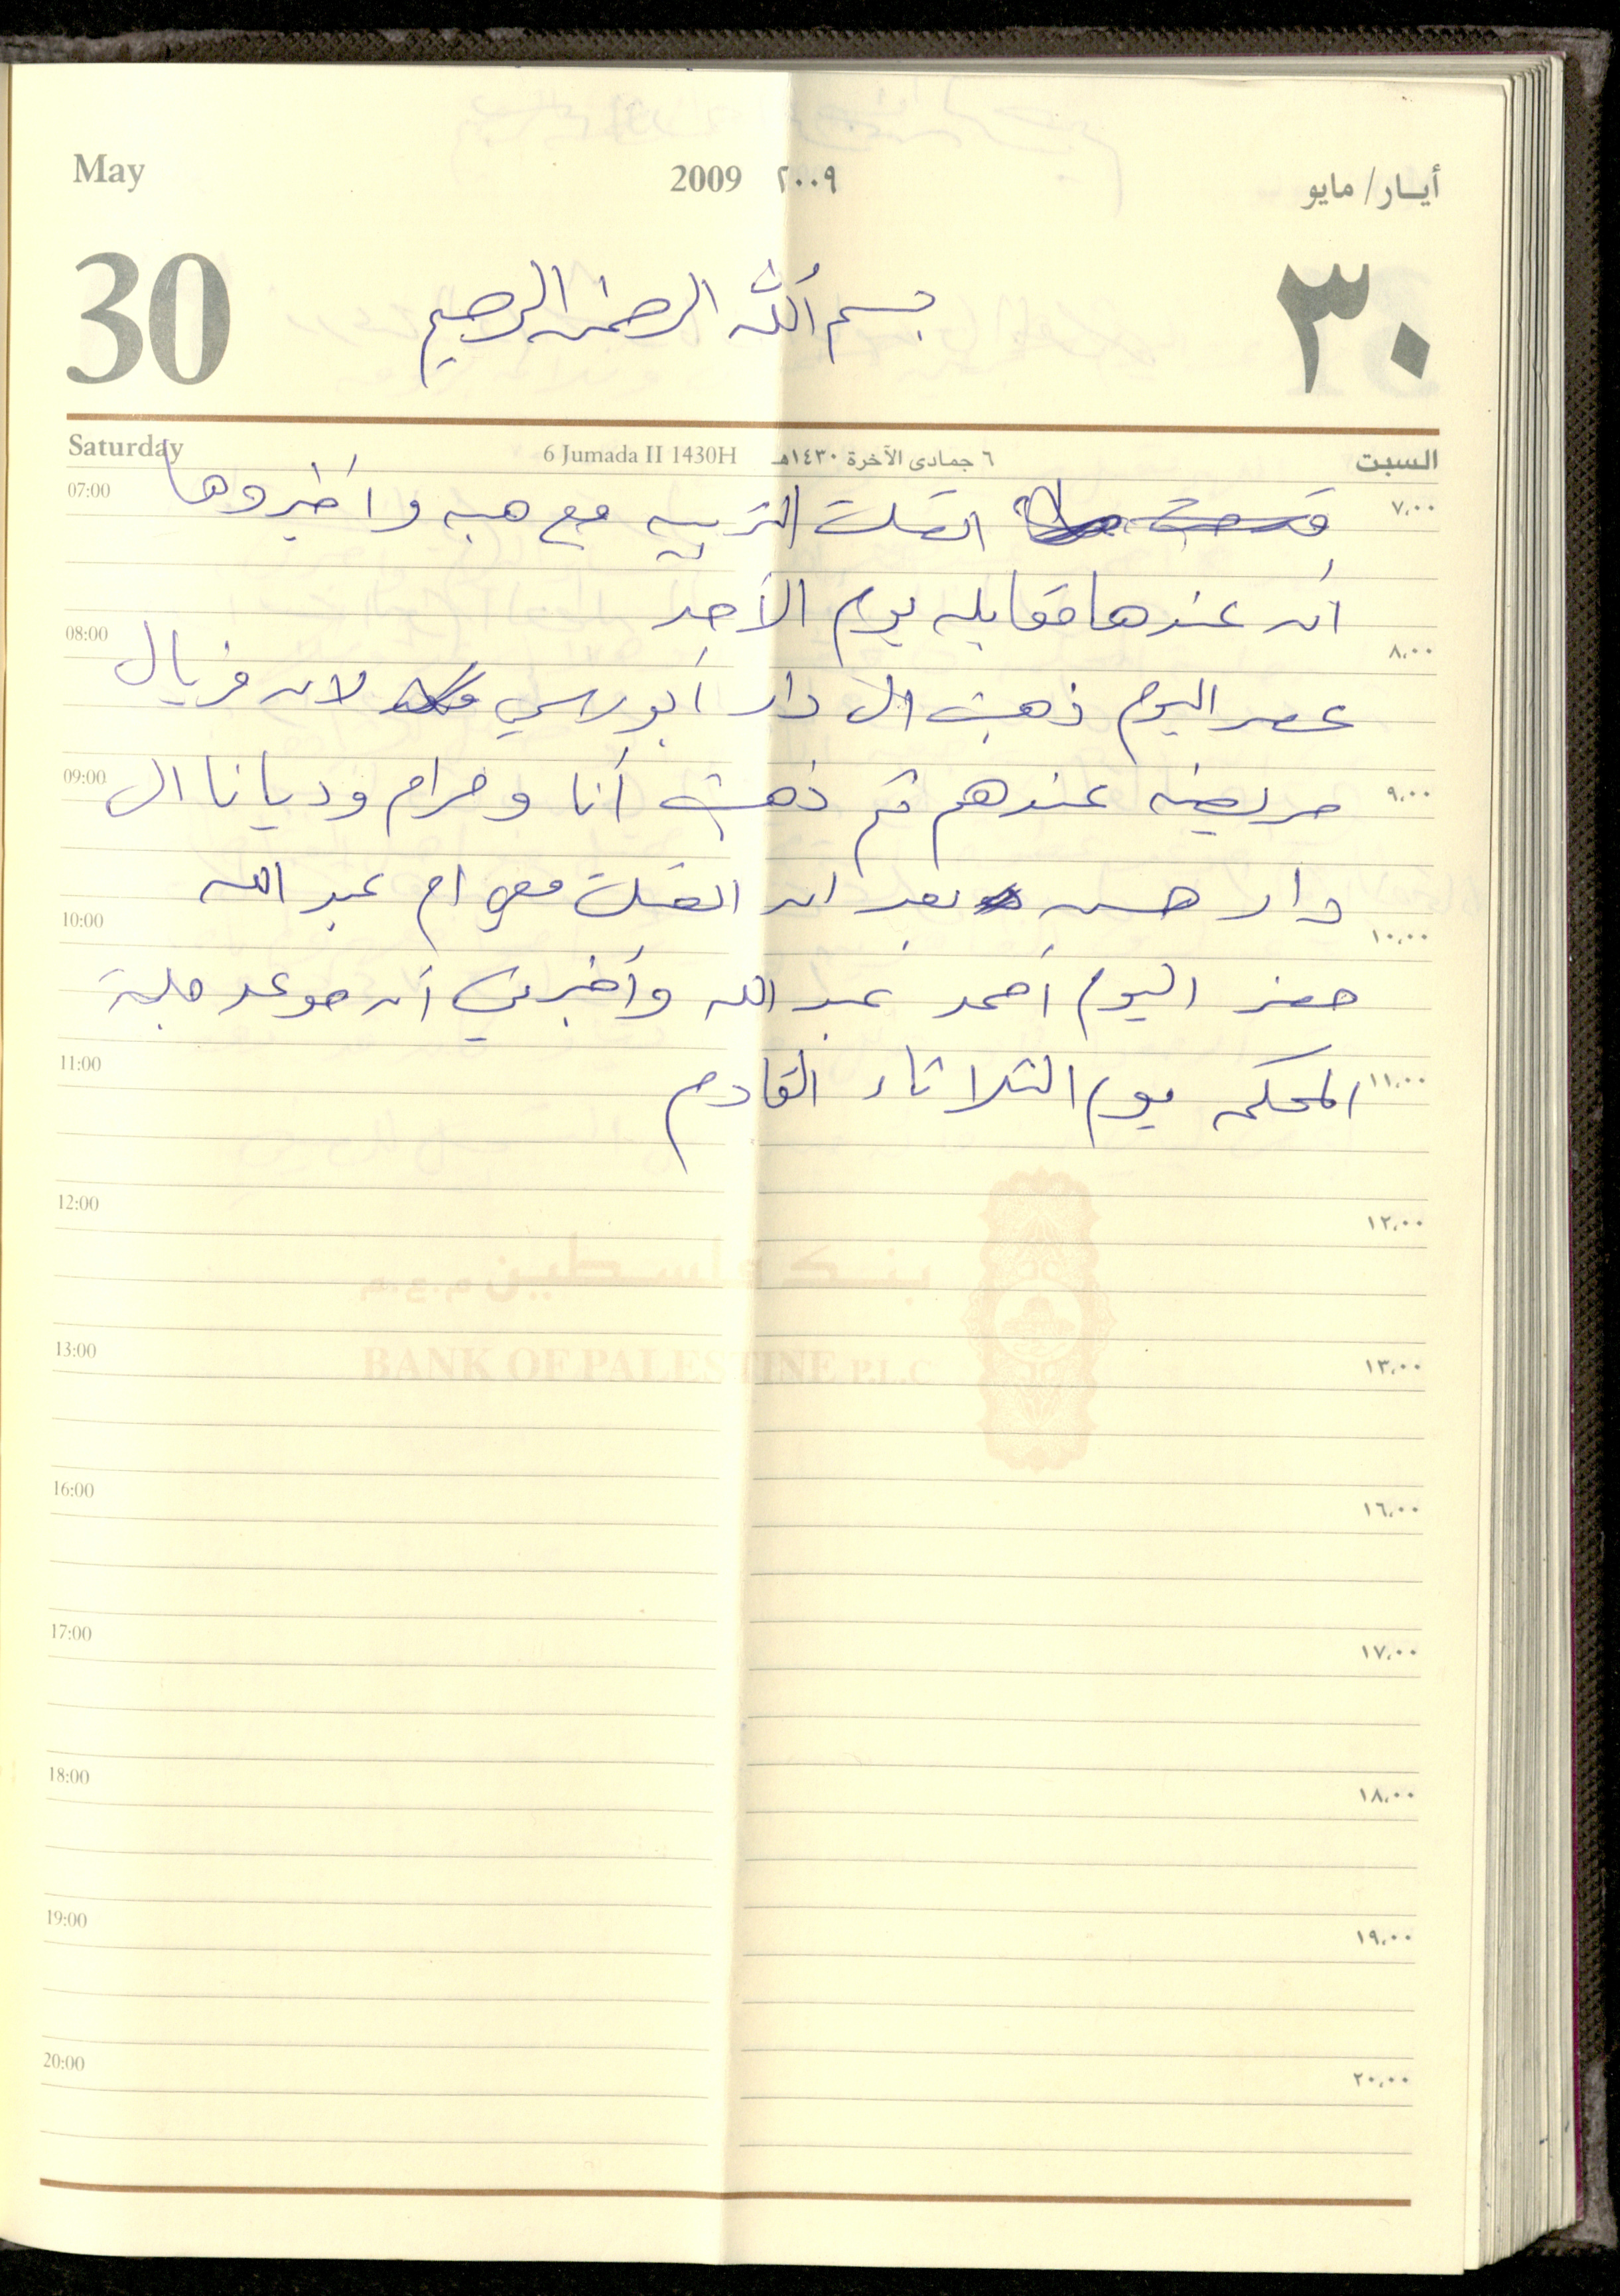 May 2009 ٢٠٠٩ أيـار/ مايو
30 بسم الله الرحمن الرحيم ٣٠
Saturday 6 Jumada II 1430H ٦ جمادى الآخرة ١٤٣٠هـ السبت
07:00 اتصلت التربيه مع هبه وأخبروها ٧,٠٠
أن عندها مقابله يوم الأحد
08:00 ٨,٠٠
عصر اليوم ذهبت الى دار أبو لان فريال
09:00 مريضه عندهم ثم ذهبت أنا ومرام وديانا الى ٩,٠٠
دار حسن بعد ان اتصلت معي ام عبد الله
10:00 ١٠,٠٠
حضر اليوم أحمد عبد الله وأخبرني أن موعد جلسة
11:00 المحكمه يوم الثلاثاء القادم ١١,٠٠
12:00 ١٢,٠٠
بنـك فلسـطين م.ع.م
13:00 BANK OF PALESTINE P.L.C ١٣,٠٠
16:00 ١٦,٠٠
17:00 ١٧,٠٠
18:00 ١٨,٠٠
19:00 ١٩,٠٠
20:00 ٢٠,٠٠